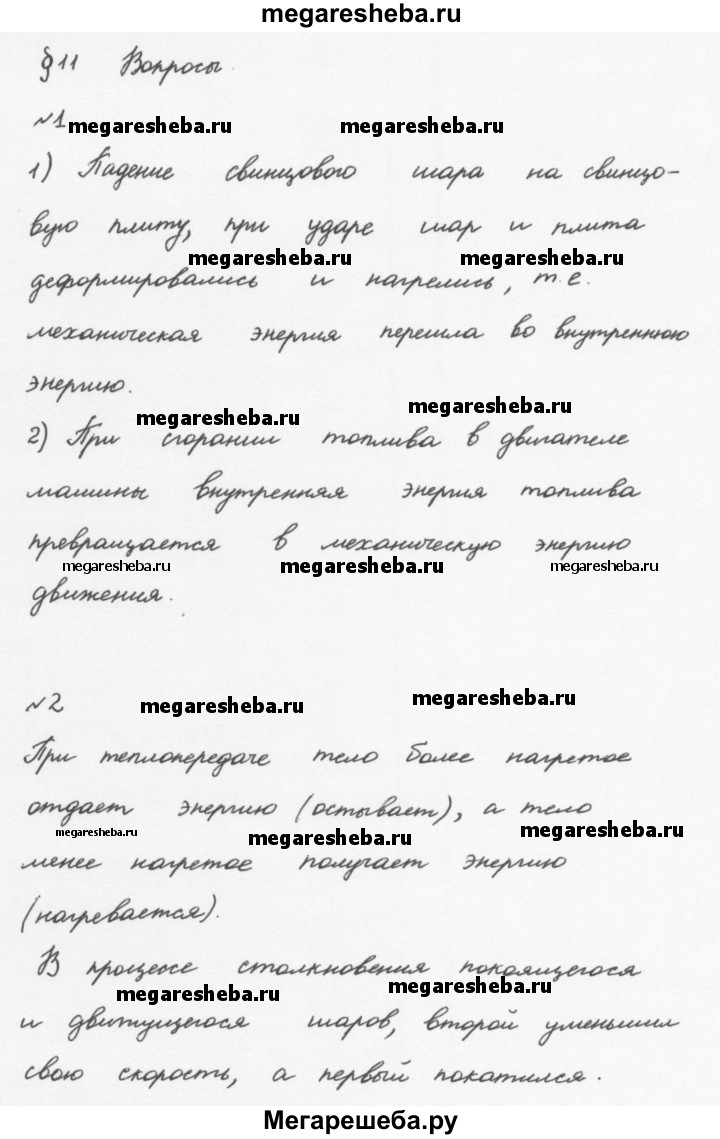 megaresheba.ru
§11 Вопросы.
№1
megaresheba.ru megaresheba.ru
1) Падение свинцового шара на свинцо-
вую плиту, при ударе шар и плита
megaresheba.ru megaresheba.ru
деформировались и нагрелись, т.е.
механическая энергия перешла во внутреннюю
энергию.
megaresheba.ru megaresheba.ru
2) При сгорании топлива в двигателе
машины внутренняя энергия топлива
превращается в механическую энергию
megaresheba.ru megaresheba.ru megaresheba.ru
движения.
№2
megaresheba.ru megaresheba.ru
При теплопередаче тело более нагретое
отдает энергию (остывает), а тело
megaresheba.ru megaresheba.ru megaresheba.ru
менее нагретое получает энергию
(нагревается).
В процессе столкновения покоящегося
megaresheba.ru megaresheba.ru
и движущегося шаров, второй уменьшил
свою скорость, а первый покатился.
Мегарешеба.ру